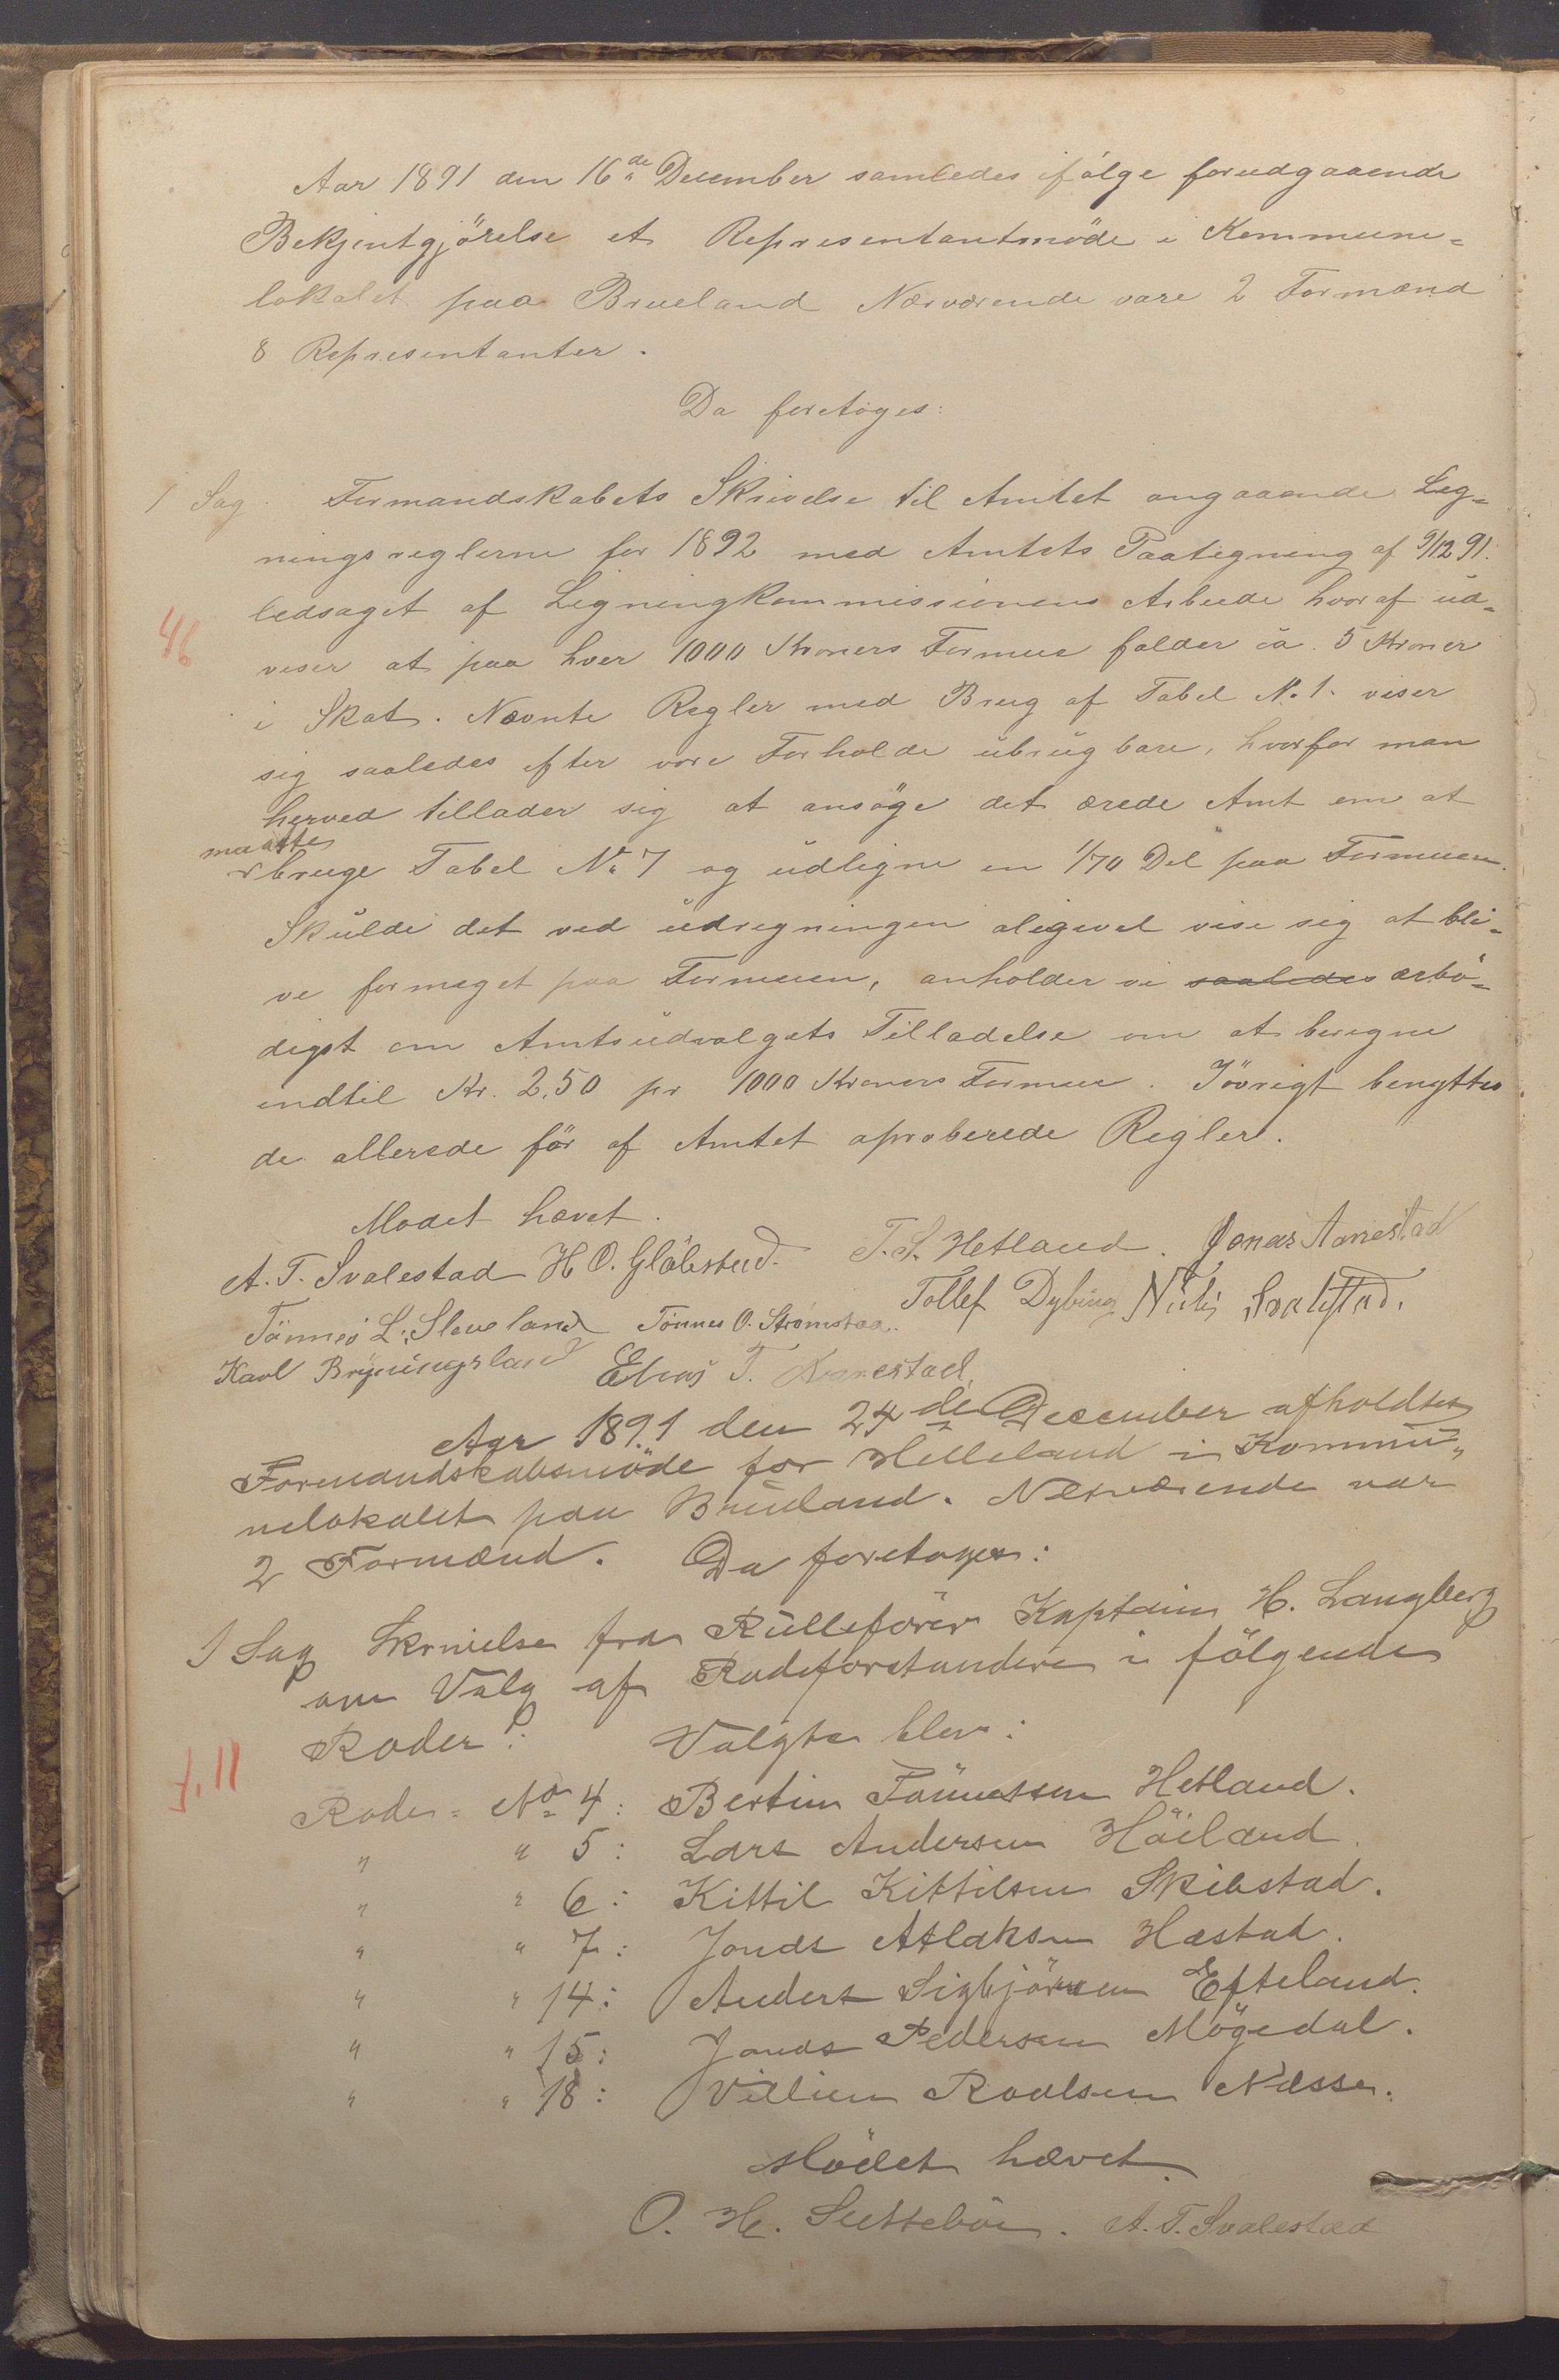 Aar 1891 den 16de December samledes ifølge forudgaaende
Bekjentgjörelse et Representantmöde i Kommune=
lokalet paa Brueland Nærværende vare 2 Formænd
8 Representanter.
Da foretoges:
1 Sag. Formandskabets Skrivelse til Amtet angaaende Lig=
ningsreglerne for 1892 med Amtets Paategning af 9/12 91.
ledsaget af Ligningkommissionens Arbeide hvoraf ud=
46
viser at paa hver 1000 Kroners Formue falder ca. 5 Kroner
i Skat. Nævnte Regler med Brug af Tabel No. 1. viser
sig saaledes efter vore Forholde ubrugbare, hvorfor man
herved tillader sig at ansöge det ærede Amt om at
maatte
bruge Tabel No 7 og udligne en 1/70 Del paa Formuen.
Skulde det ved udregningen aligevel vise sig at bli=
ve formeget paa Formuen, anholder vi saaledes ærbö=
digst om Amtsudvalgets Tilladelse om at beregne
indtil Kr. 2,50 pr 1000 Kroners Formue. Iövrigt benyttes
de allerede för af Amtet aproberede Regler.
Mödet hævet.
A. T. Svalestad H. O. Glöbstad. T. S. Hetland. Jonas Aarrestad
Tönnes L. Sleveland Tönnes O. Strömstad. Tollef Dybing Niels Svalestad.
Karl Bryningsland Elias T. Aarrestad.
Aar 1891 den 24de December afholdtes
Formandskabsmöde for Helleland i Kommu=
nelokalet paa Brueland. Nærværende var
2 Formænd. Da foretoges:
1 Sag Skrivelse fra Rulleförer Kaptain H. Langberg
om Valg af Rodeforstandere i fölgende
Roder: Valgte blev:
J. 11
Rode = No 4: Bertin Tönnessen Hetland.
" " 5: Lars Andersen Höiland.
" " 6: Kittil Kittilsen Skibstad.
" " 7: Jonas Atlaksen Hæstad.
" " 14: Anders Sigbjörnsen Efteland.
" " 15: Jonas Pedersen Mögedal.
" " 18: Villum Roalsen Næsse.
Mödet hævet.
O. H. Slettebö. A. T. Svalestad